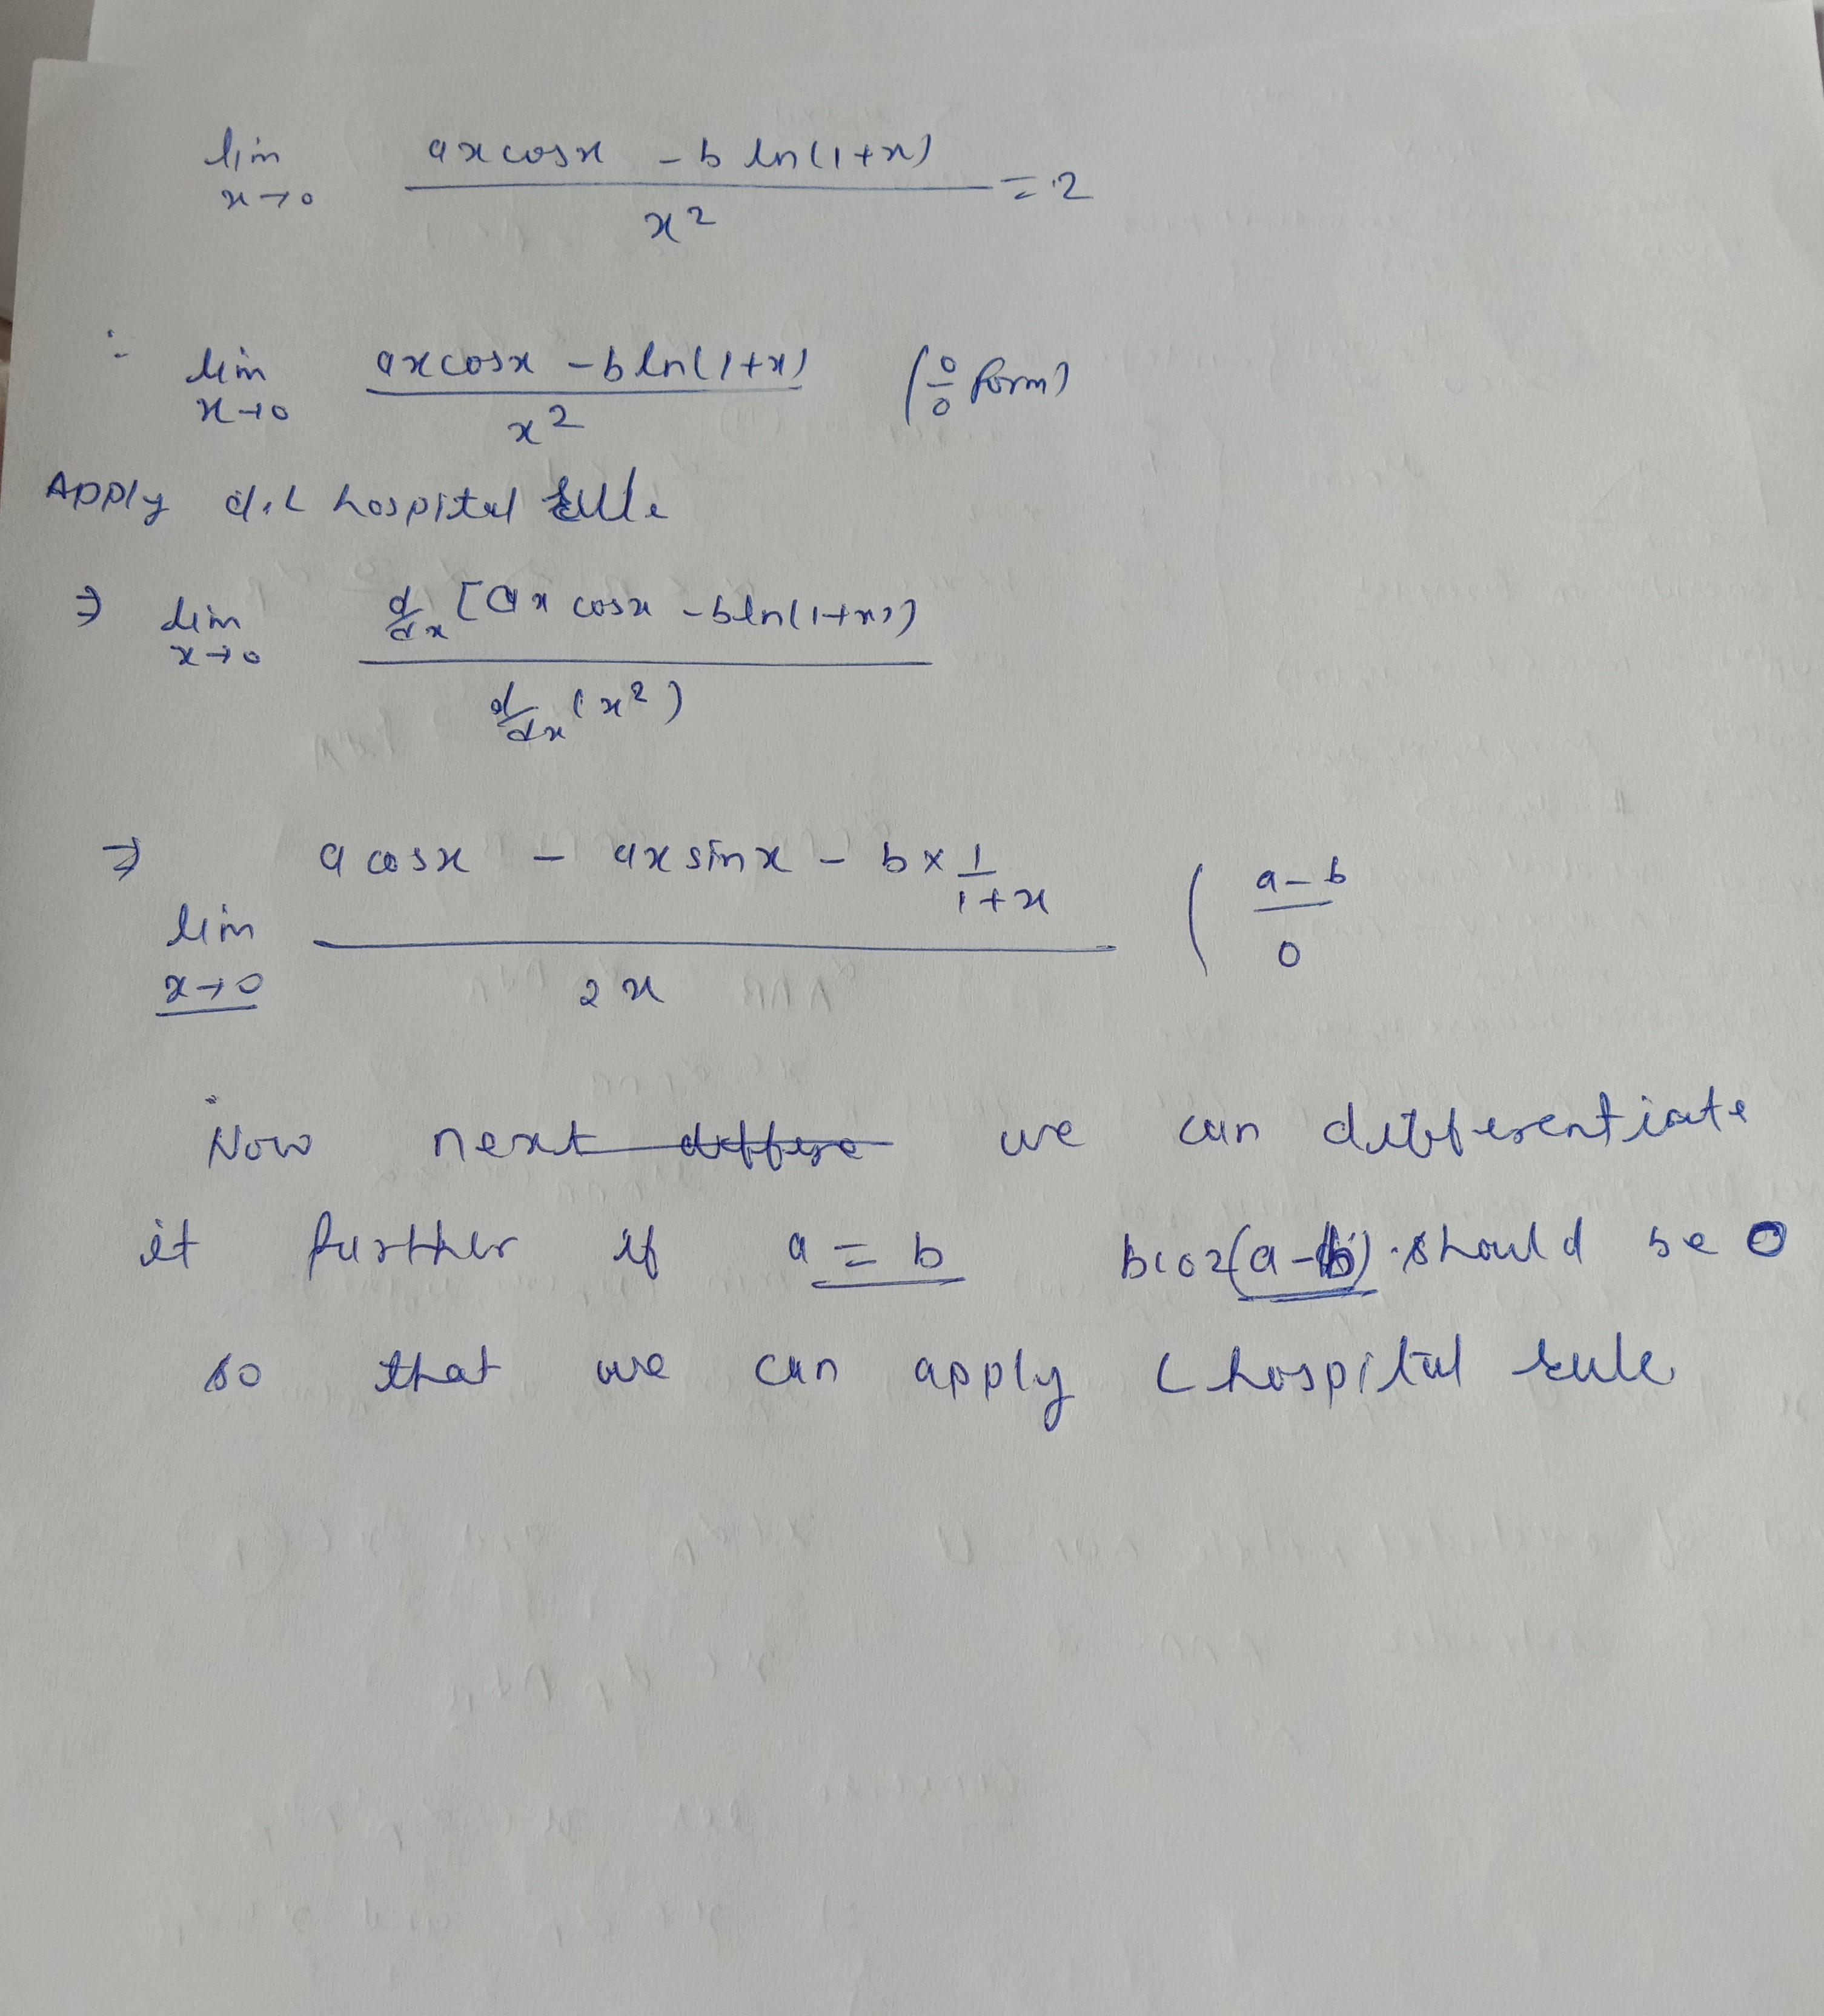 lim ax cosx - b ln(1+x)
x→0 x² = 2
∴ lim ax cosx - b ln(1+x) (0/0 form)
x→0 x²
Apply d.L hospital rule
⇒ lim d/dx [ax cosx - b ln(1+x)]
x→0 d/dx (x²)
⇒ a cosx - ax sinx - b × 1/1+x ( a-b/0
lim
x→0 2x
Now next we can differentiate
it further if a = b bcoz (a-b) should be 0
so that we can apply L hospital rule